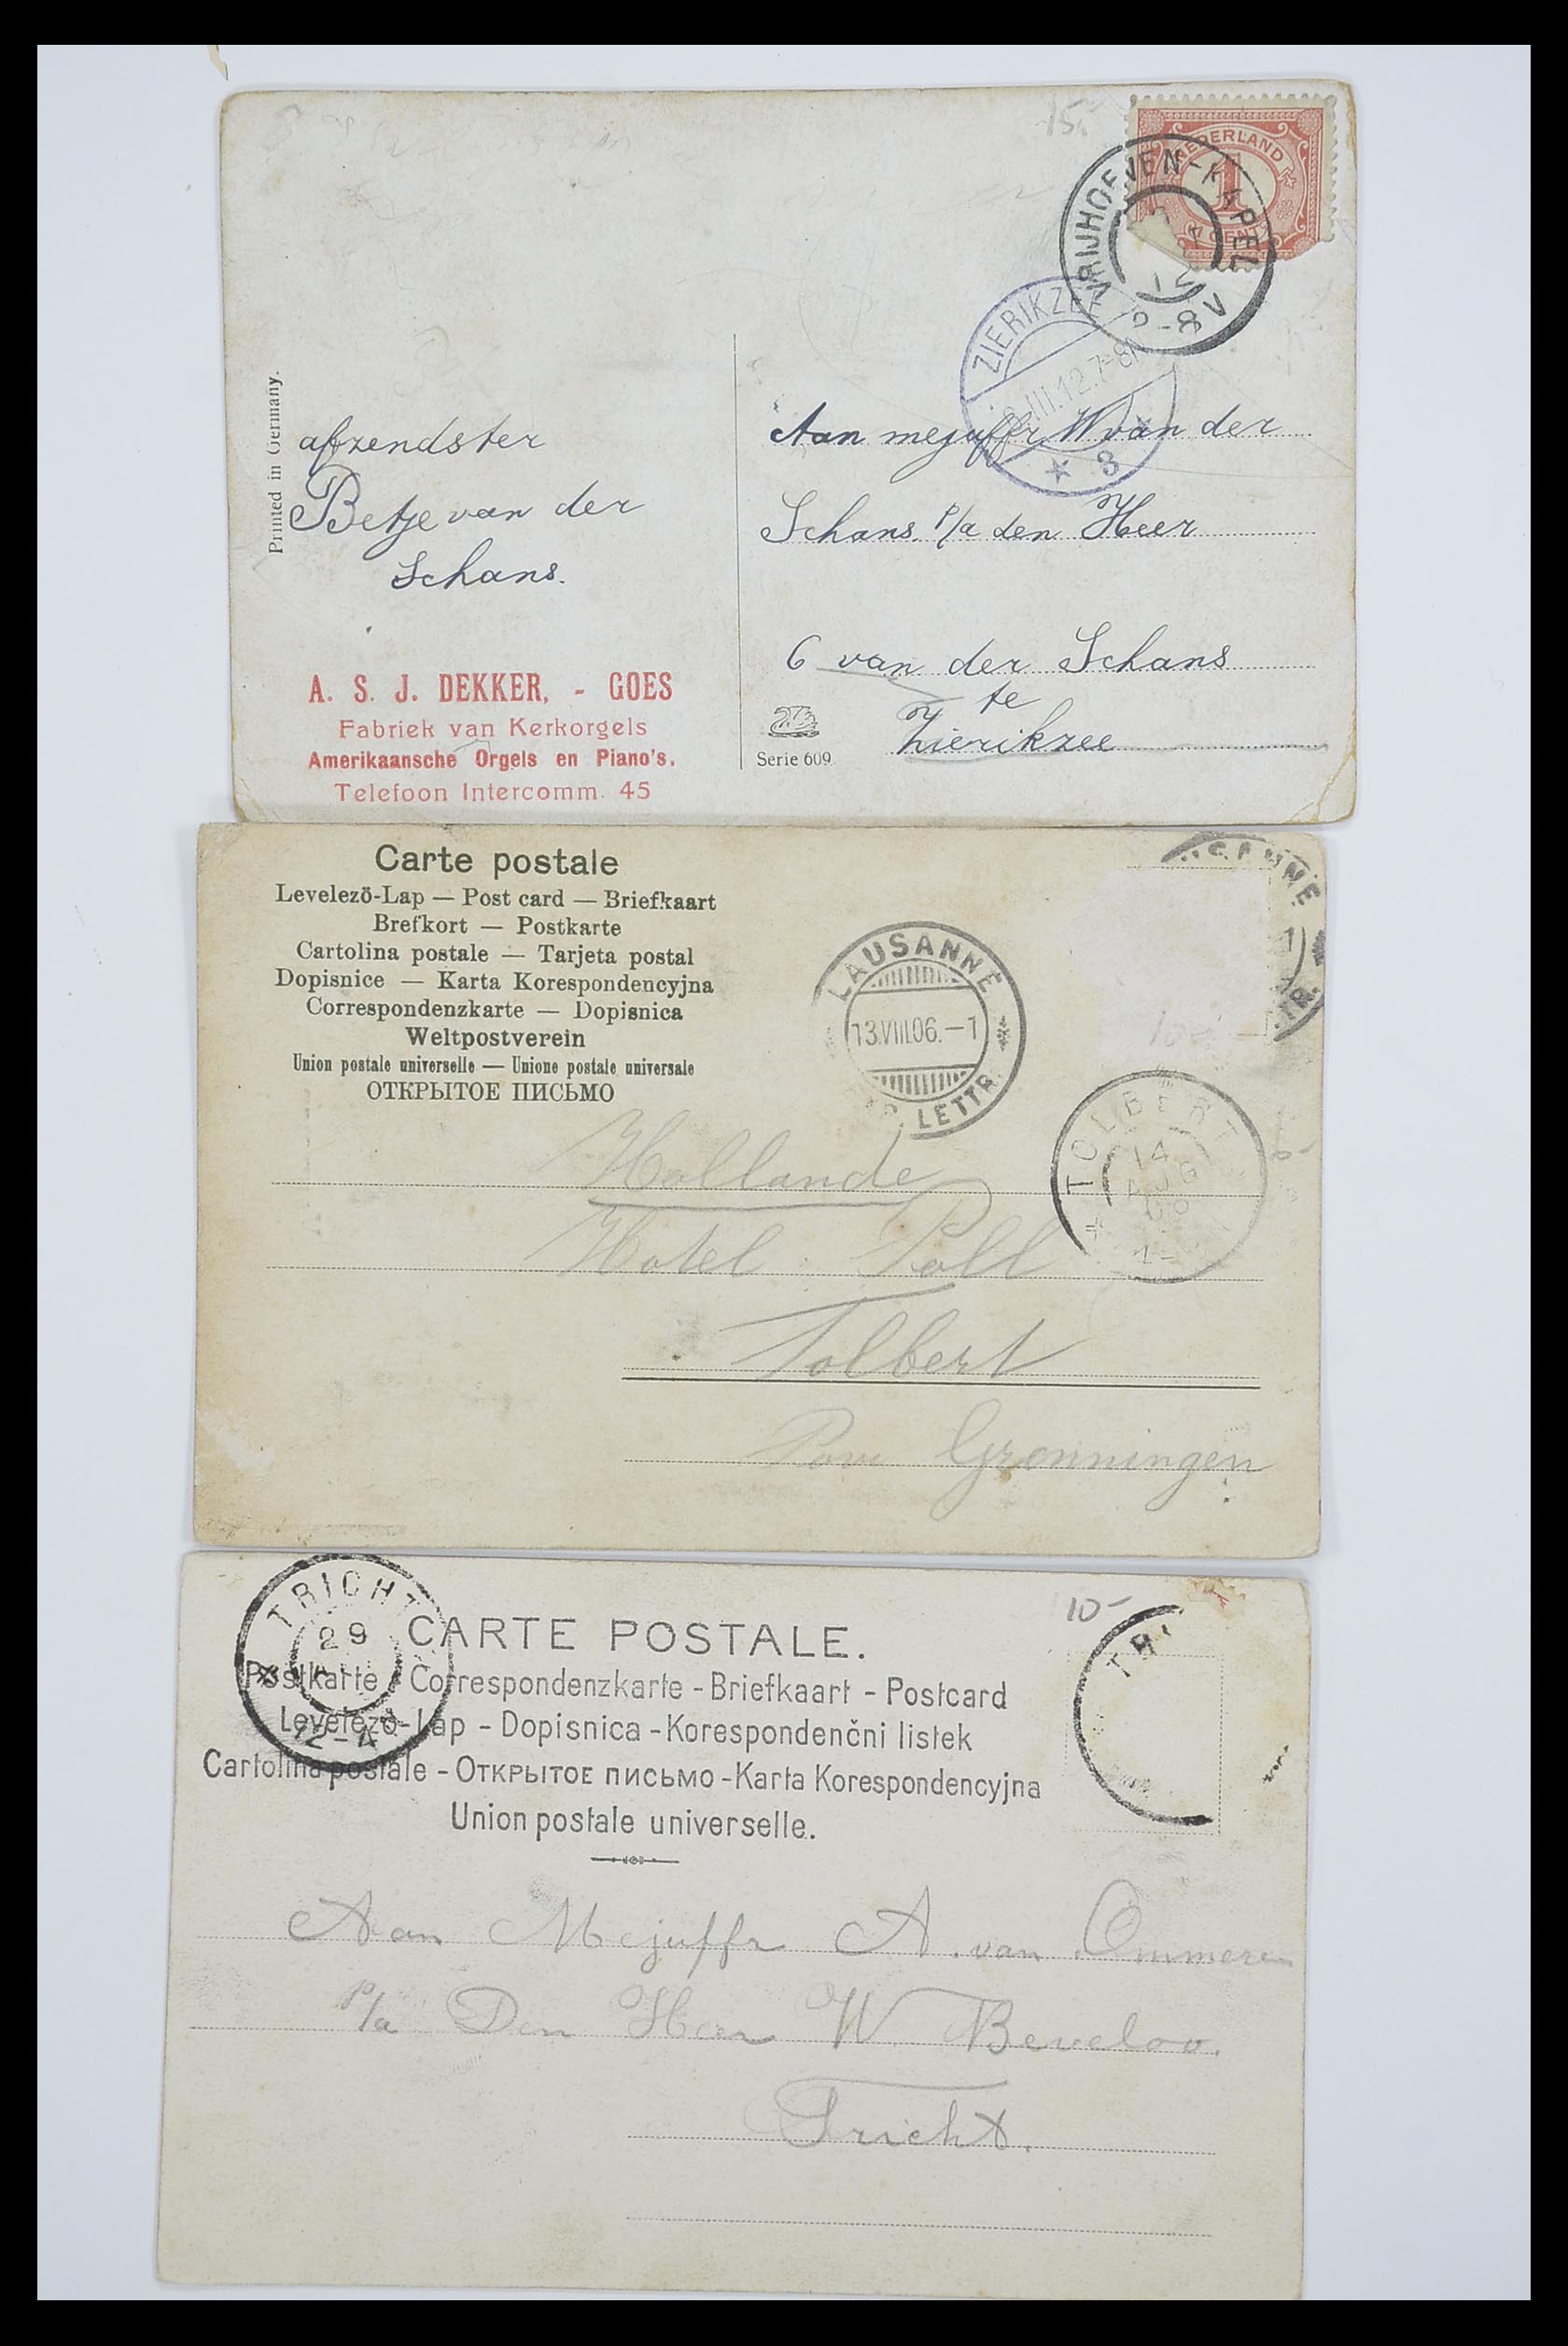 15.-
NEDERLAND
1
CENT
VRIJHOEVEN-KAPEL
12
8 V
ZIERIKZEE
III.12.7-8
3
Printed in Germany.
afzendster
Betje van der
Schans.
Aan mejuffr W van der
Schans. p/a den Heer
G van der Schans
te
Zierikzee
Serie 609
A. S. J. DEKKER, - GOES
Fabriek van Kerkorgels
Amerikaansche Orgels en Piano's.
Telefoon Intercomm. 45
Carte postale
Levelezö-Lap — Post card — Briefkaart
Brefkort — Postkarte
Cartolina postale — Tarjeta postal
Dopisnice — Karta Korespondencyjna
Correspondenzkarte — Dopisnica
Weltpostverein
Union postale universelle — Unione postale universale
ОТКРЫТОЕ ПИСЬМО
LAUSANNE
13.VIII.06.-1
LETTR.
TOLBERT
14
AUG
Hollande
Hotel Poll
Tolbert
Prov Gronningen
TRICHT
29
12-4
10-
TRI
CARTE POSTALE.
Postkarte - Correspondenzkarte - Briefkaart - Postcard
Levelezö-Lap - Dopisnica - Korespondenčni listek
Cartolina postale - ОТКРЫТОЕ ПИСЬМО - Karta Korespondencyjna
Union postale universelle.
Aan Mejuffr A. van Ommeren
p/a Den Heer W Beveloo.
Tricht.